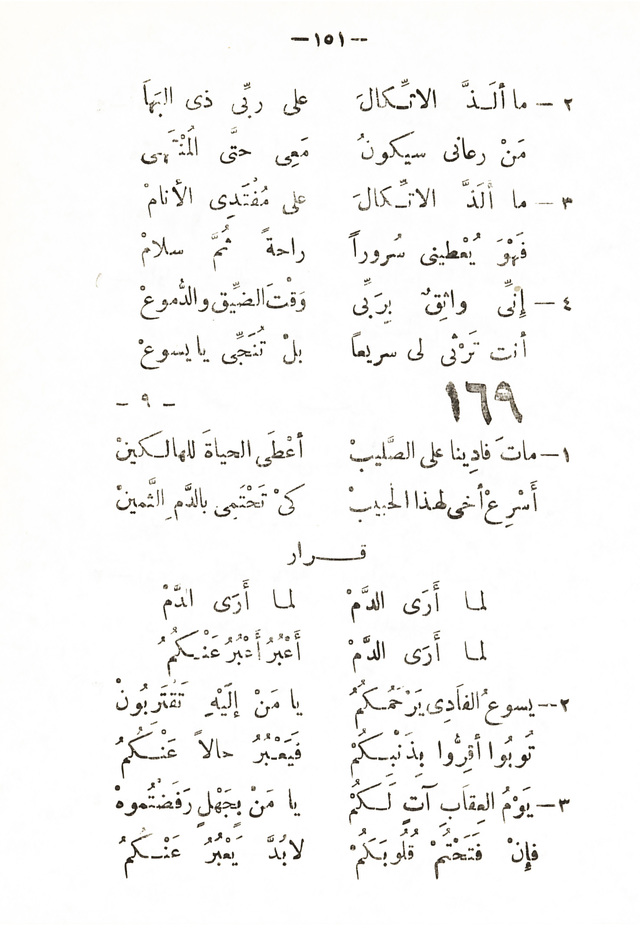 — ١٥١ —
٢ — ما ألَـذَّ الاتـِّـكالَ على ربِّى ذى البَهاَ
مَنْ رعانى سيكونُ مَعِى حتَّى المُنْتَهى
٣ — ما ألَذَّ الاتـِّـكالَ على مُفْتَدِى الأنامْ
فَهْوَ يُعْطينى سُروراً راحةً ثُمَّ سلامْ
٤ — إنِّى واثِقٌ بِرَبِّى وَقْتَ الضِّيق والدُّموعْ
أنت تَرْثى لى سريعاً بلْ تُنَجِّى يا يسوعْ
١٦٩ - ٩ -
١ — ماتَ فادِينا على الصَّليبْ أعْطَى الحياةَ للهالـكينْ
أَسْرِعْ أخى لهذا الحَبيبْ كىْ تَحْتَمِى بالدَّمِ الثَّمينْ
قـــرار
لمـا أَرَى الدَّمْ لمـا أَرَى الدَّمْ
لمـا أَرَى الدَّمْ أَعْبُرُ أَعْبُرُ عَنْـكُمُ
٢ — يسوعُ الفَادِى يَرْحَمُـكُمُ يا مَنْ إلَيْهِ تَقْتَرِبُونْ
تُوبُوا أقِرُّوا بِذَنْبِـكُمْ فَيَعْبُرُ حالاً عَنْـكُمُ
٣ — يَوْمُ العِقابِ آتٍ لَـكُمْ يا مَنْ بِجَهْلٍ رَفَضْتُموهْ
فإنْ فَتَحْتُمْ قُلُوبَكُمْ لابُدَّ يَعْبُرُ عَنْـكُمُ